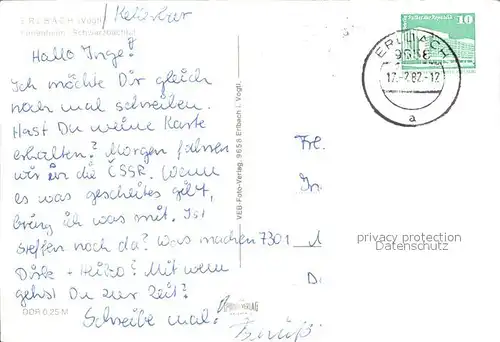 ERLBACH (Vogtl.)
Hallo Inge!
Ich möchte Dir gleich
noch mal schreiben.
Hast Du meine Karte
erhalten? Morgen fahren
wir in die ČSSR. Wenn
es was gescheites gibt,
bring ich was mit. Ist
Steffen noch da? Was machen
Dirk + Heiko? Mit wem
gehst Du zur Zeit?
Schreibe mal!
DDR 0,25 M
VEB-Foto-Verlag, 9658 Erlbach i. Vogtl.
10
ERLBACH
9658
17.-7.82.-12
a
Frl.
7301
privacy protection
Datenschutz